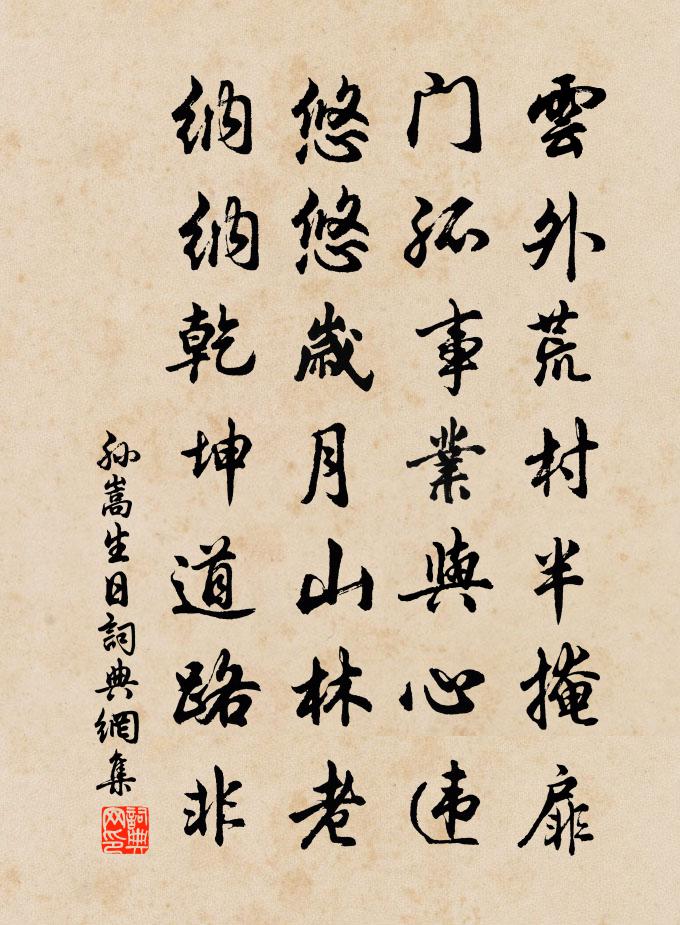 雲外荒村半掩扉
门孤事業與心违
悠悠歲月山林老
納納乾坤道路非
孙嵩生日詞典網集
詞典网印